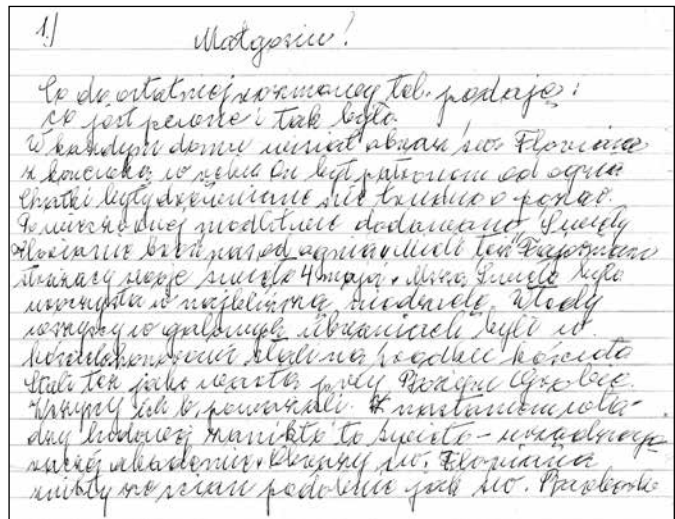 1.)
Małgosiu!
Co do ostatniej rozmowy tel. podaję:
co jest pewne i tak było
W każdym domu wisiał obraz św. Floriana
z konewką w ręku On był patronem od ognia
Chatki były drewniane nie trudno o pożar.
Po wieczornej modlitwie dodawano, Święty
Florianie broń nas od ognia. Mieli też
strażacy swoje święto 4 maja. Msza Święta była
uroczysta w najbliższą niedzielę. Wtedy
wszyscy w galowych ubraniach byli w
kościele honorowo stali na środku kościoła
Stali też jako warta przy Bożym Grobie.
Wszyscy ich b. poważali. Z nastaniem wła-
dzy ludowej znikło to święto - urządzają
raczej akademie. Obrazy św. Floriana
znikły ze ścian podobnie jak św.